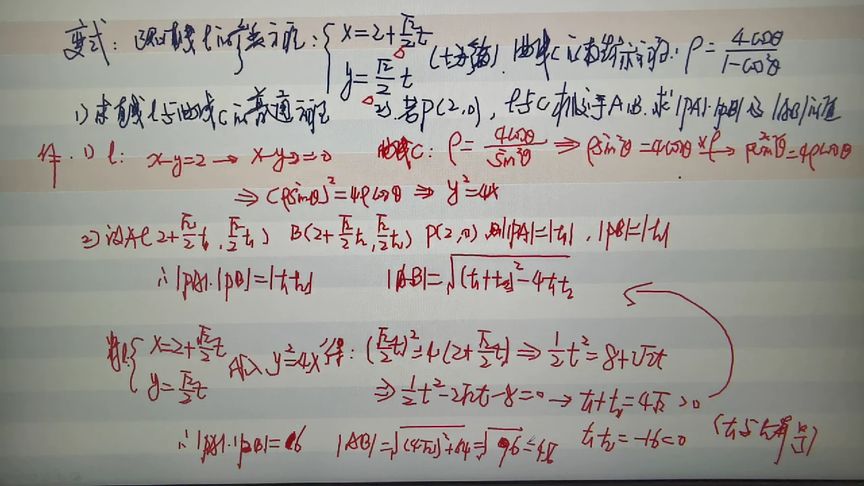 变式：已知直线l的参数方程：{x=2+√2/2 t
y=√2/2 t (t为参数)，曲线C的极坐标方程：ρ=4cosθ/(1-cos²θ)
1) 求直线l与曲线C的普通方程 2) 若P(2,0)，l与C相交于A、B，求|PA|·|PB|及|AB|的值
解：1) l: x-y=2→x-y-2=0 曲线C: ρ=4cosθ/sin²θ ⇒ ρsin²θ=4cosθ ×ρ→ ρ²sin²θ=4ρcosθ
⇒(ρsinθ)²=4ρcosθ ⇒ y²=4x
2) 设A(2+√2/2 t₁, √2/2 t₁) B(2+√2/2 t₂, √2/2 t₂) P(2,0) 则|PA|=|t₁|，|PB|=|t₂|
∴|PA|·|PB|=|t₁t₂| |AB|=√((t₁+t₂)²-4t₁t₂)
将l{x=2+√2/2 t
y=√2/2 t 代入y²=4x得：(√2/2 t)²=4(2+√2/2 t) ⇒ 1/2 t²=8+2√2t
⇒ 1/2 t²-2√2t-8=0 → t₁+t₂=4√2>0
∴|PA|·|PB|=16 |AB|=√((4√2)²+64)=√96=4√6 t₁t₂=-16<0 (t₁与t₂异号)